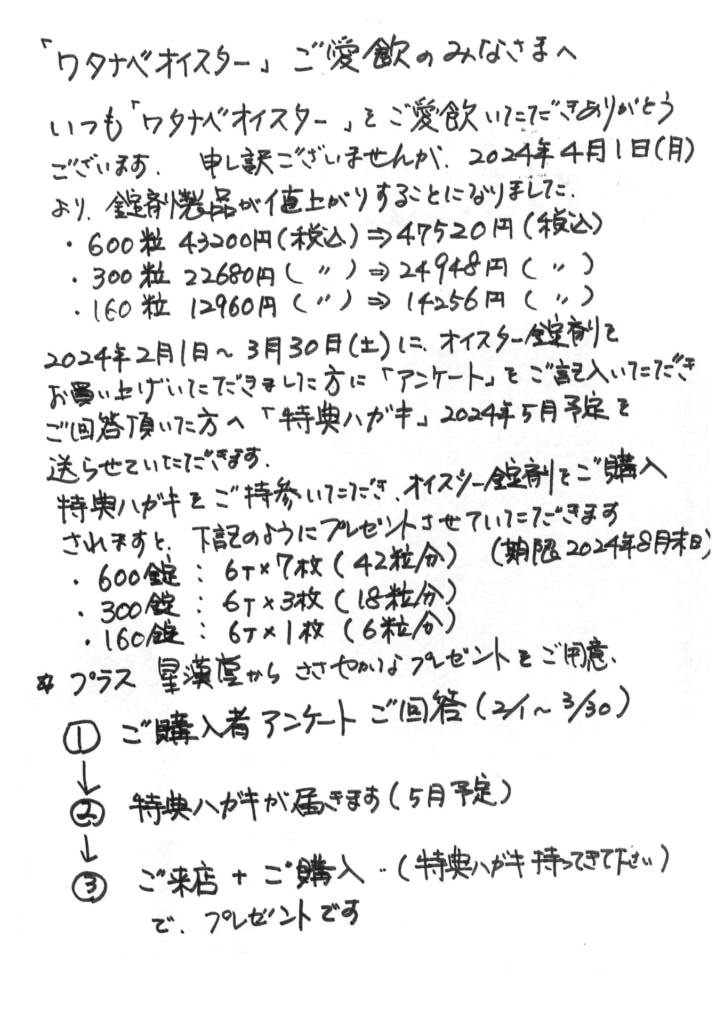 「ワタナベオイスター」ご愛飲のみなさまへ
いつも「ワタナベオイスター」をご愛飲いただきありがとう
ございます. 申し訳ございませんが、2024年4月1日(月)
より、錠剤製品が値上がりすることになりました.
・600粒 43200円(税込)⇒47520円(税込)
・300粒 22680円( 〃 )⇒24948円( 〃 )
・160粒 12960円( 〃 )⇒14256円( 〃 )
2024年2月1日～3月30日(土)に、オイスター錠剤を
お買い上げいただきました方に「アンケート」をご記入いただき
ご回答頂いた方へ「特典ハガキ」2024年5月予定を
送らせていただきます.
特典ハガキをご持参いただき、オイスター錠剤をご購入
されますと、下記のようにプレゼントさせていただきます
(期限2024年8月末日)
・600錠：6T×7枚(42粒分)
・300錠：6T×3枚(18粒分)
・160錠：6T×1枚(6粒分)
* プラス 星漢堂からささやかなプレゼントをご用意.
① ご購入者アンケートご回答(2/1～3/30)
↓
② 特典ハガキが届きます(5月予定)
↓
③ ご来店+ご購入‥(特典ハガキ持ってきて下さい)
で、プレゼントです